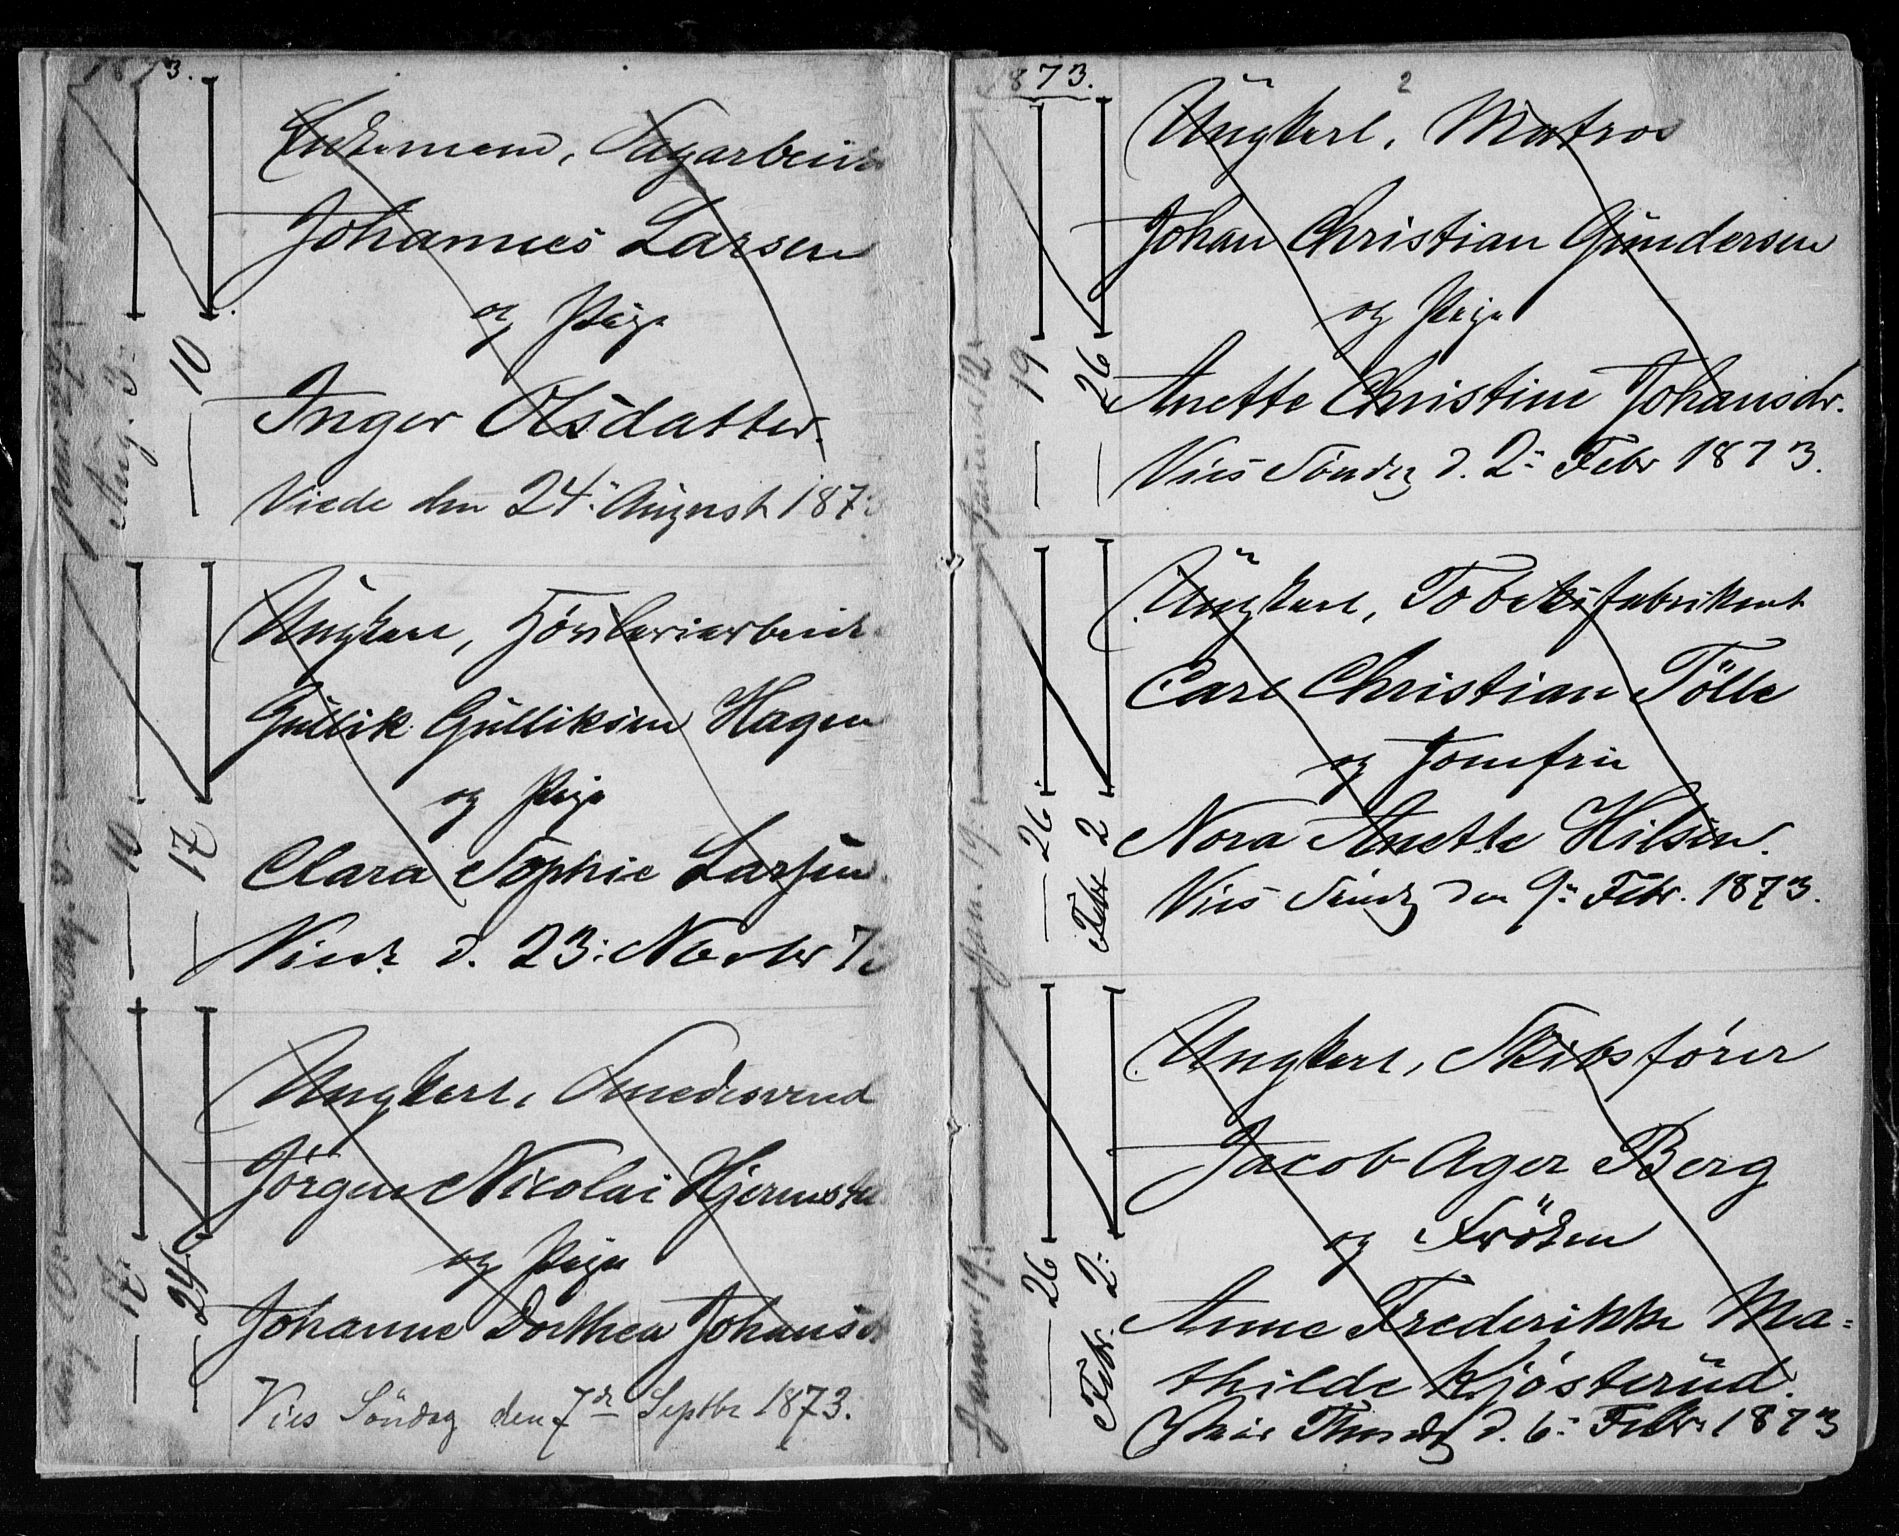 1873.
Enkemand, Sagarbeid
Johannes Larsen
og Pige
Inger Olsdatter.
Viede den 24: August 187
Aug. 3:
10
Ungkarl,
Gullik Gulliksen Hagen
og Pige
Clara Sophie Larsen.
Viede d. 23: Novbr 7
10
17
Ungkarl, Smedesvend
Jörgen Nicolai Hjermst
og Pige
Johanne Dorthea Johansd
Vies Söndag den 7de Septbr 1873.
17
24
1873.
2
Ungkarl, Matros
Johan Christian Gundersen
og Pige
Anette Christine Johansdr.
Vies Søndag d. 2: Febr 1873.
Januar 12:
19
26
Ungkarl, Tobaksfabrikant
Carl Christian Tölle
og Jomfru
Nora Anette Hilsen.
Vies Søndag den 9: Febr. 1873.
Jan. 19:
26
Febr 2
Ungkarl, Skibsfører
Jacob Ager Berg
og Fröken
Anne Frederikke Ma=
thilde Kjösterud.
Thorsdag d. 6: Febr. 1873
Januar 19:
26
Febr. 2: